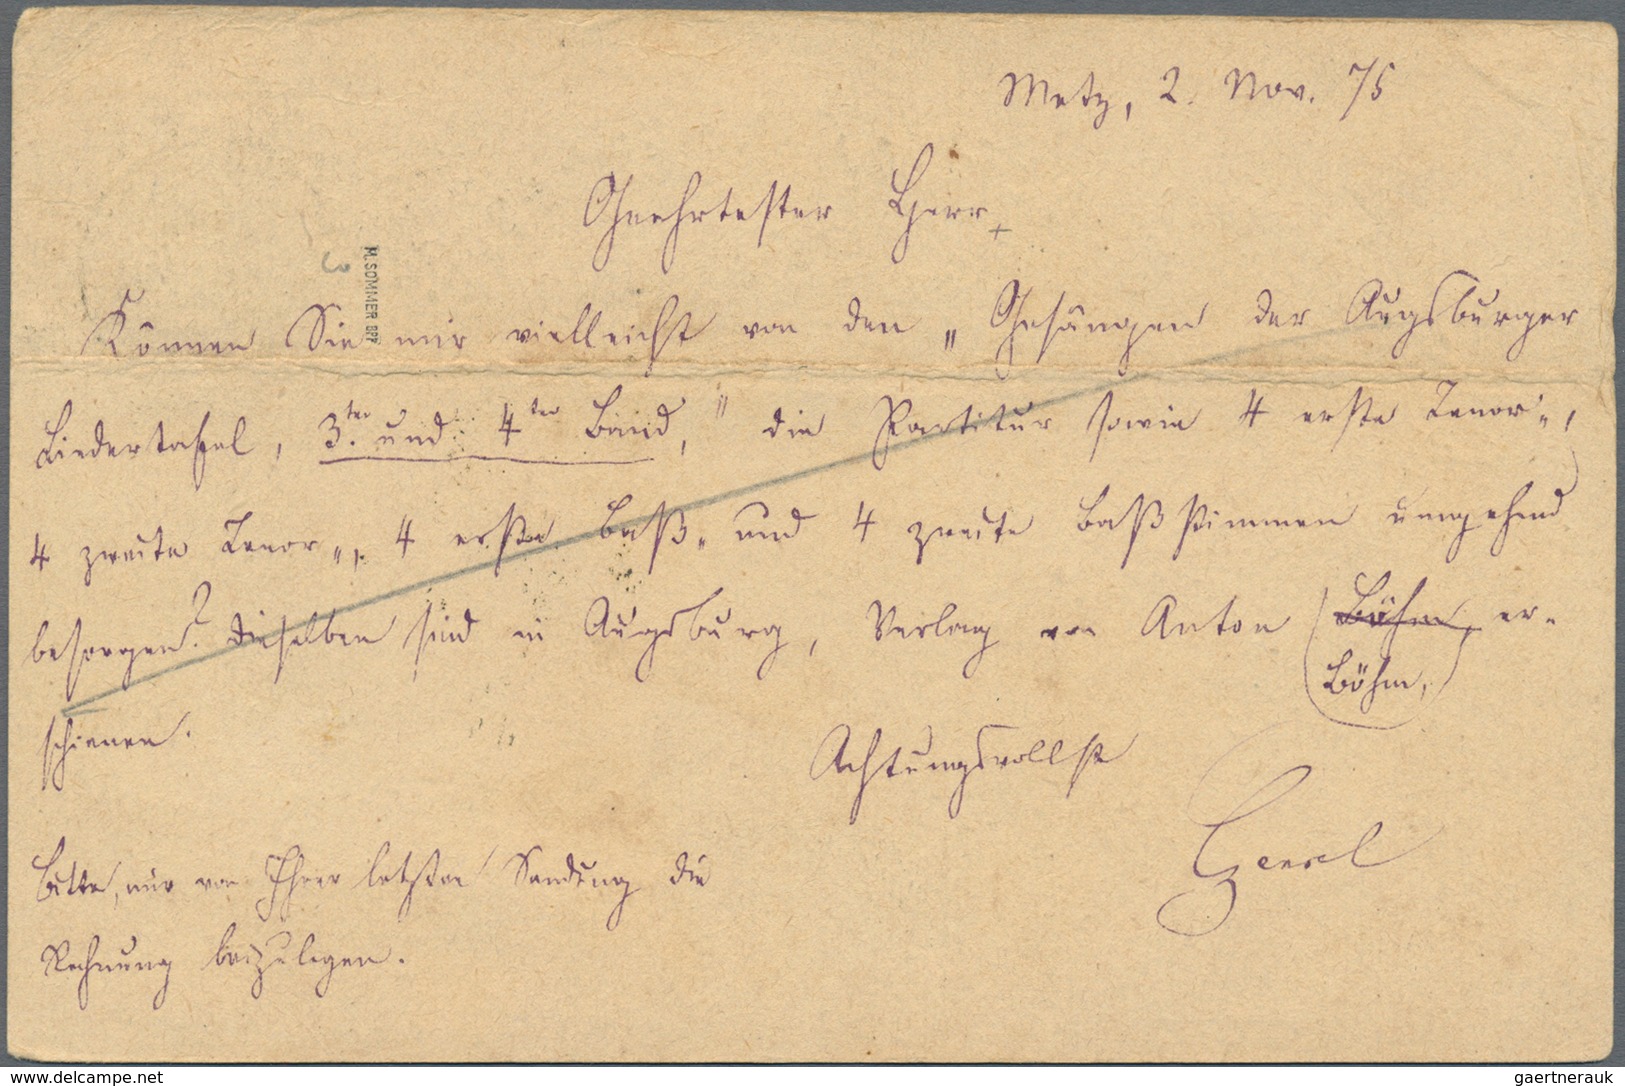 Metz, 2. Nov. 75
Geehrtester Herr,
Können Sie mir vielleicht von den „Gesängen der Augsburger
Liedertafel, 3.ter und 4ter Band," die Partitur sowie 4 erste Tenor-,
4 zweite Tenor-, 4 erste Baß- und 4 zweite Baßstimmen umgehend
besorgen? Dieselben sind in Augsburg, Verlag von Anton Böhm, er-
Böhm,
schienen.
Achtungsvollst
Bitte, mir von Ihrer letzten Sendung die
Rechnung beizulegen.
M. SOMMER BPP
3
www.delcampe.net
gaertnerauk